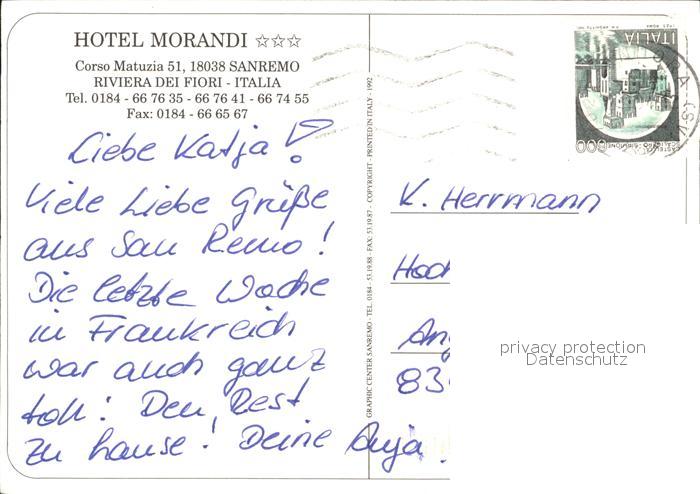 HOTEL MORANDI ☆☆☆
Corso Matuzia 51, 18038 SANREMO
RIVIERA DEI FIORI - ITALIA
Tel. 0184 - 66 76 35 - 66 76 41 - 66 74 55
Fax: 0184 - 66 65 67
Liebe Katja!
Viele Liebe Grüße
aus San Remo!
Die letzte Woche
in Frankreich
war auch ganz
toll! Den Rest
zu hause! Deine Anja.
GRAPHIC CENTER SANREMO - TEL. 0184 - 53.19.88 - FAX: 53.19.87 - COPYRIGHT - PRINTED IN ITALY - 1992
ITALIA
K. Herrmann
Hoch
Ang
83
privacy protection
Datenschutz